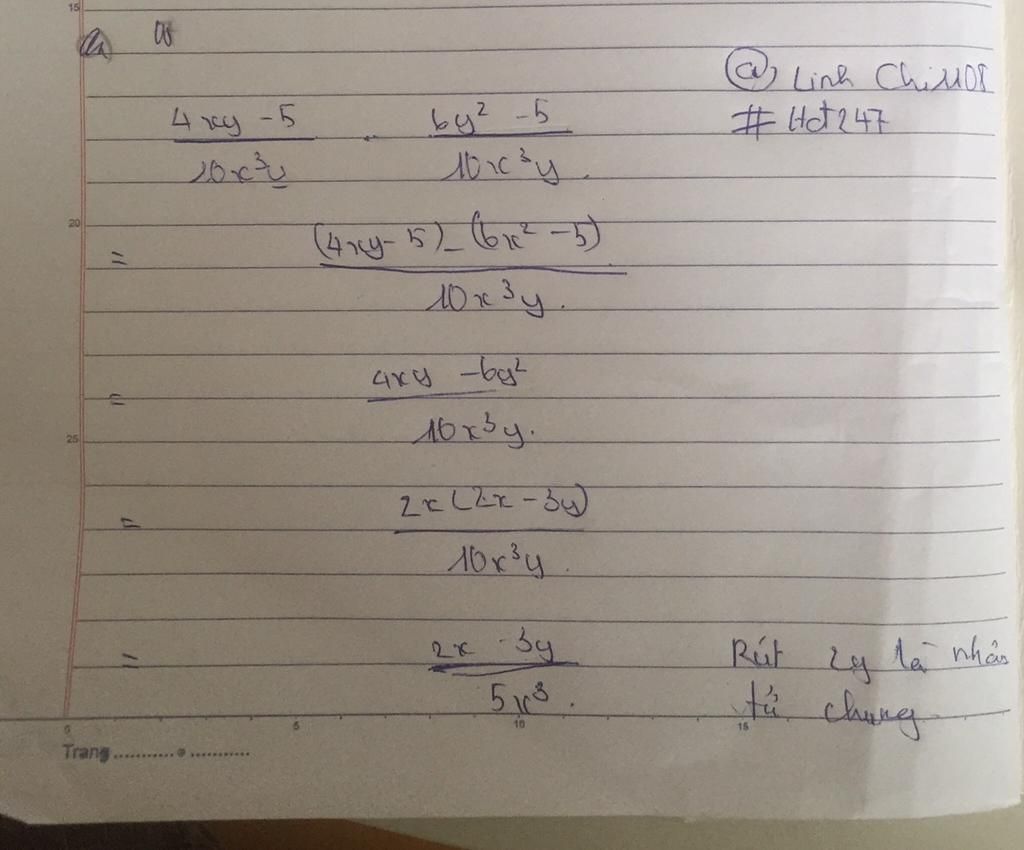 15
@ Linh Chi1108
# Hot247
4xy - 5 / 10x³y - 6y² - 5 / 10x³y .
20
= (4xy - 5) - (6x² - 5) / 10x³y .
= 4xy - 6y² / 10x³y .
25
= 2x (2x - 3y) / 10x³y .
= 2x - 3y / 5x³ .
Rút 2y là nhân
tử chung
0 5 10 15
Trang ........... ...........